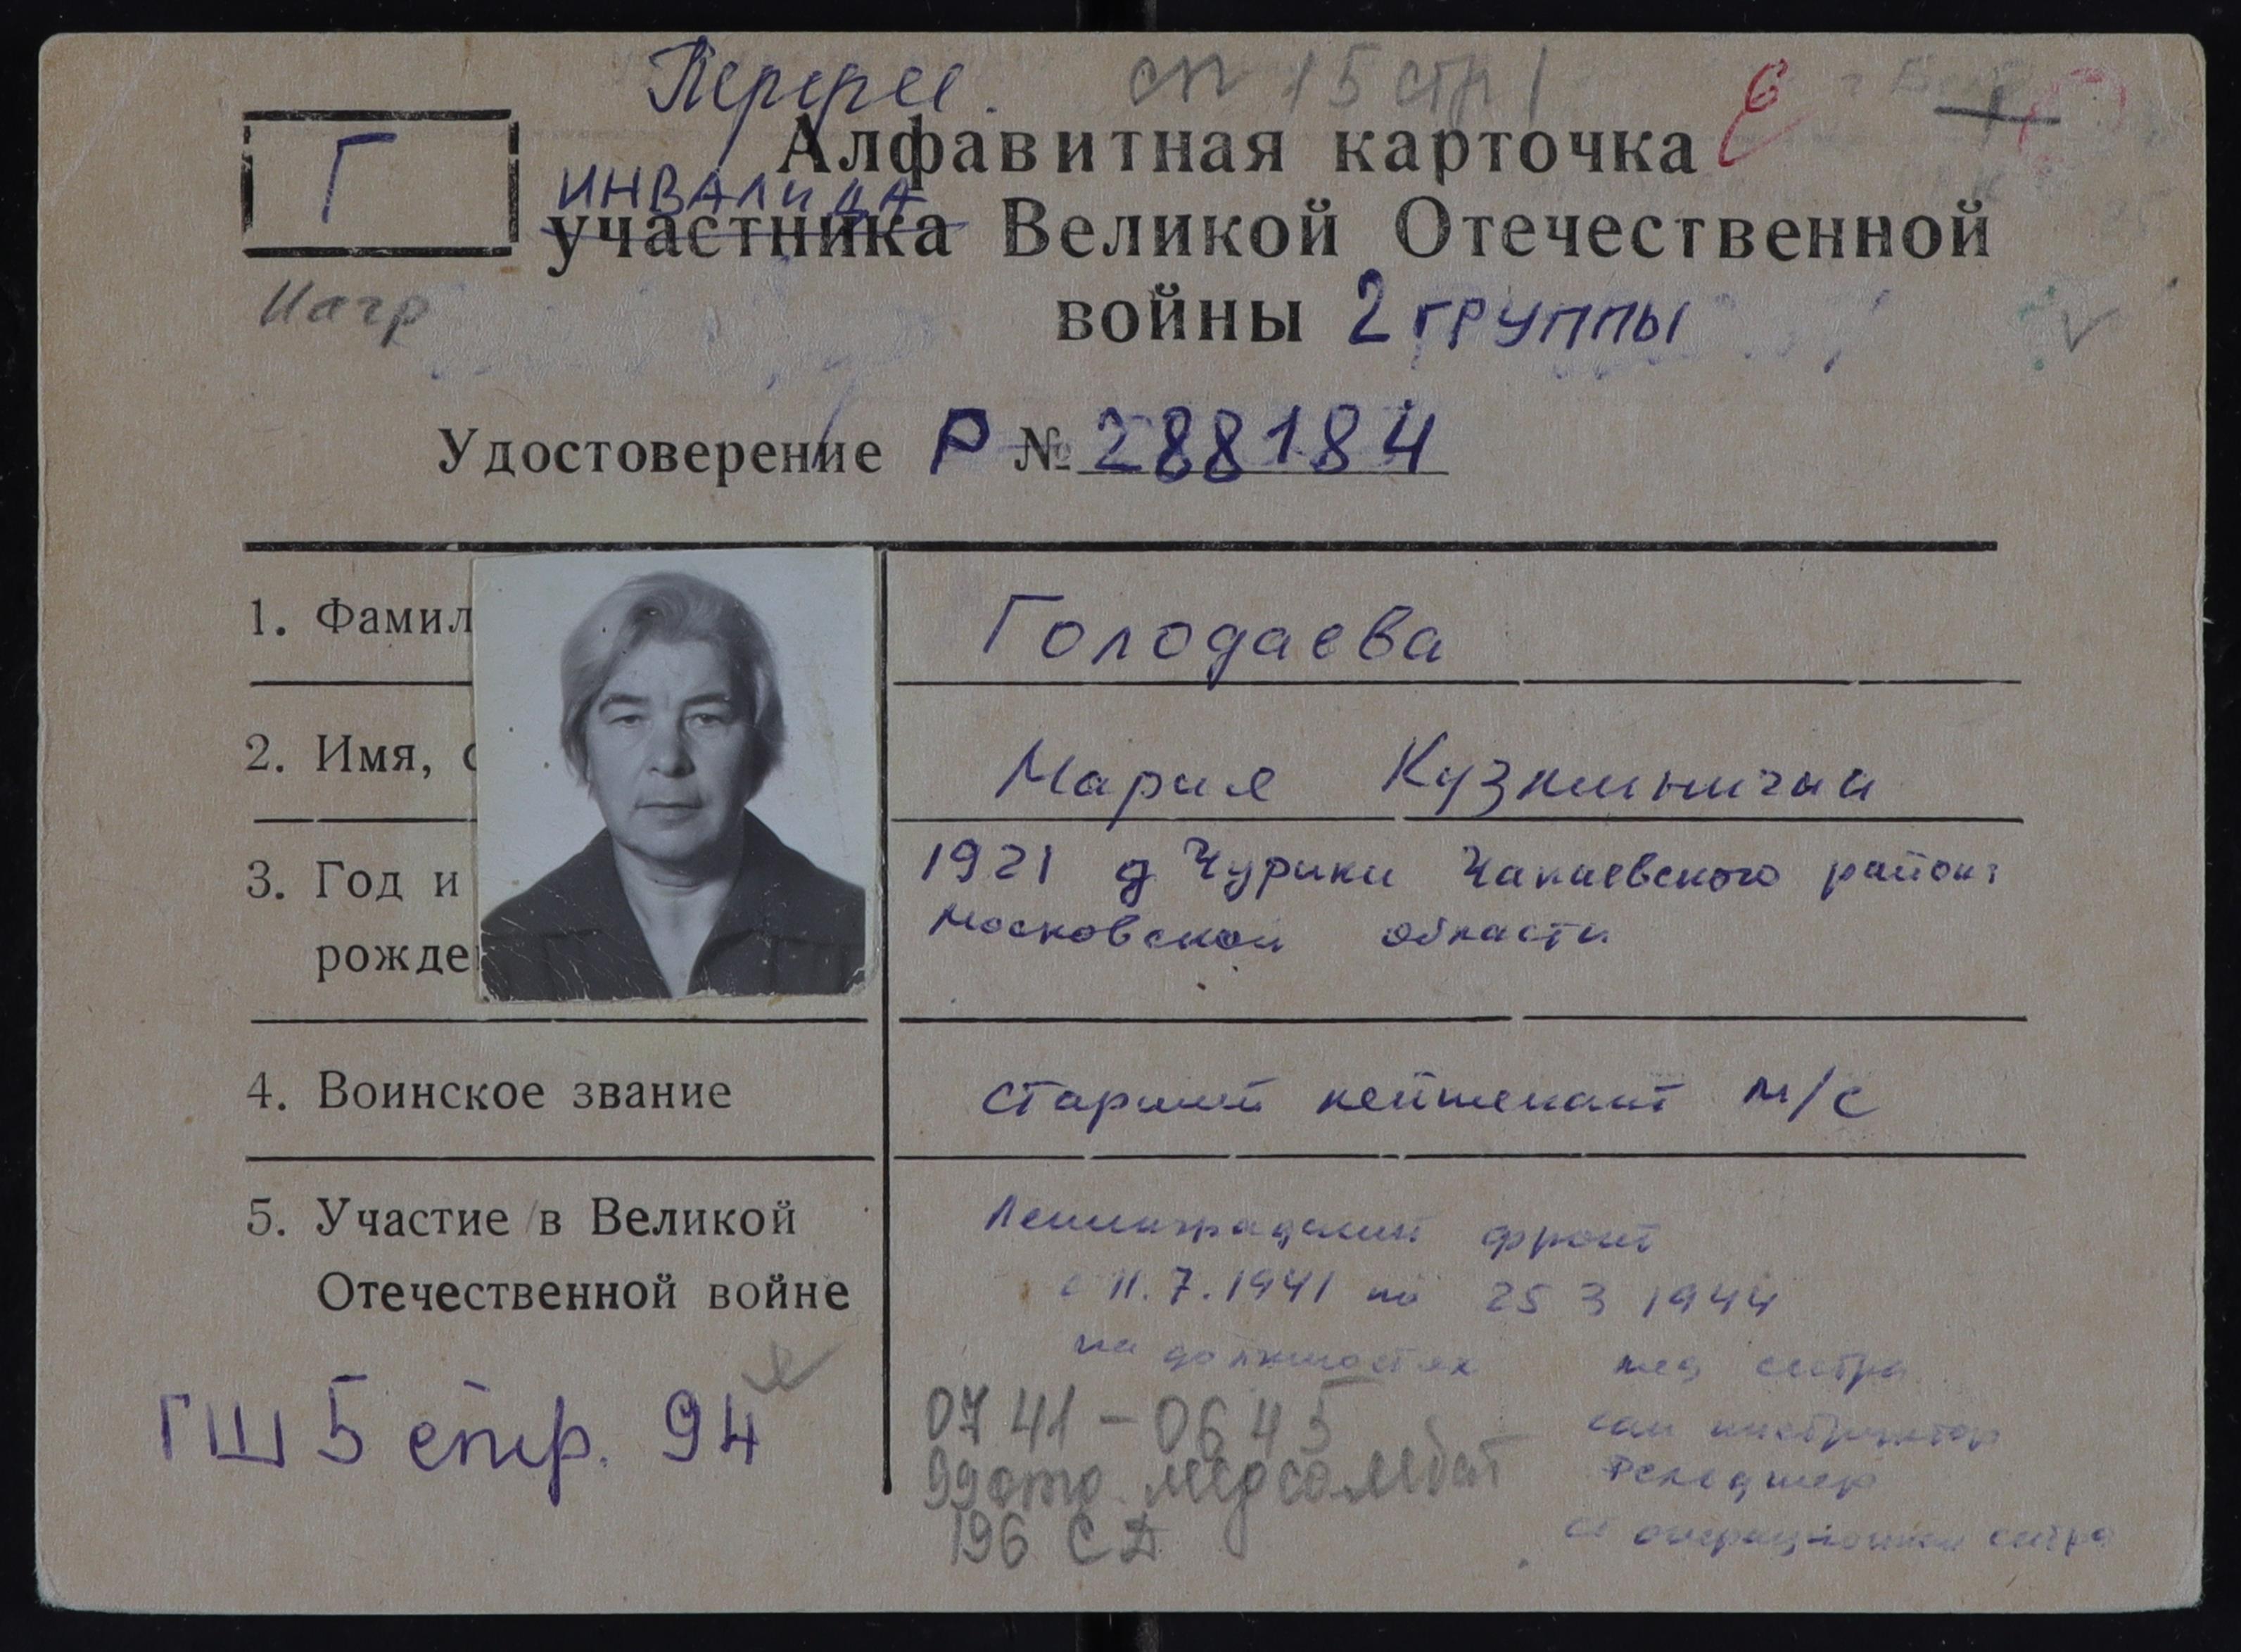 Перерег. сп 15 стр 1 6
Г
Алфавитная карточка
ИНВАЛИДА
участника Великой Отечественной
Нагр
войны 2 ГРУППЫ
Удостоверение Р № 288184
1. Фамил Голодаева
2. Имя, Мария Кузьминична
3. Год и 1921 д Чурики Чапаевского района
рожде Московской области
4. Воинское звание старший лейтенант м/с
5. Участие в Великой Ленинградский фронт
Отечественной войне с 11.7.1941 по 25 3 1944
на должностях мед сестра
ГШ 5 стр. 94 07 41 - 06 45 сан инструктор
99 отд. медсанбат Фельдшер
196 СД ст операционная сестра